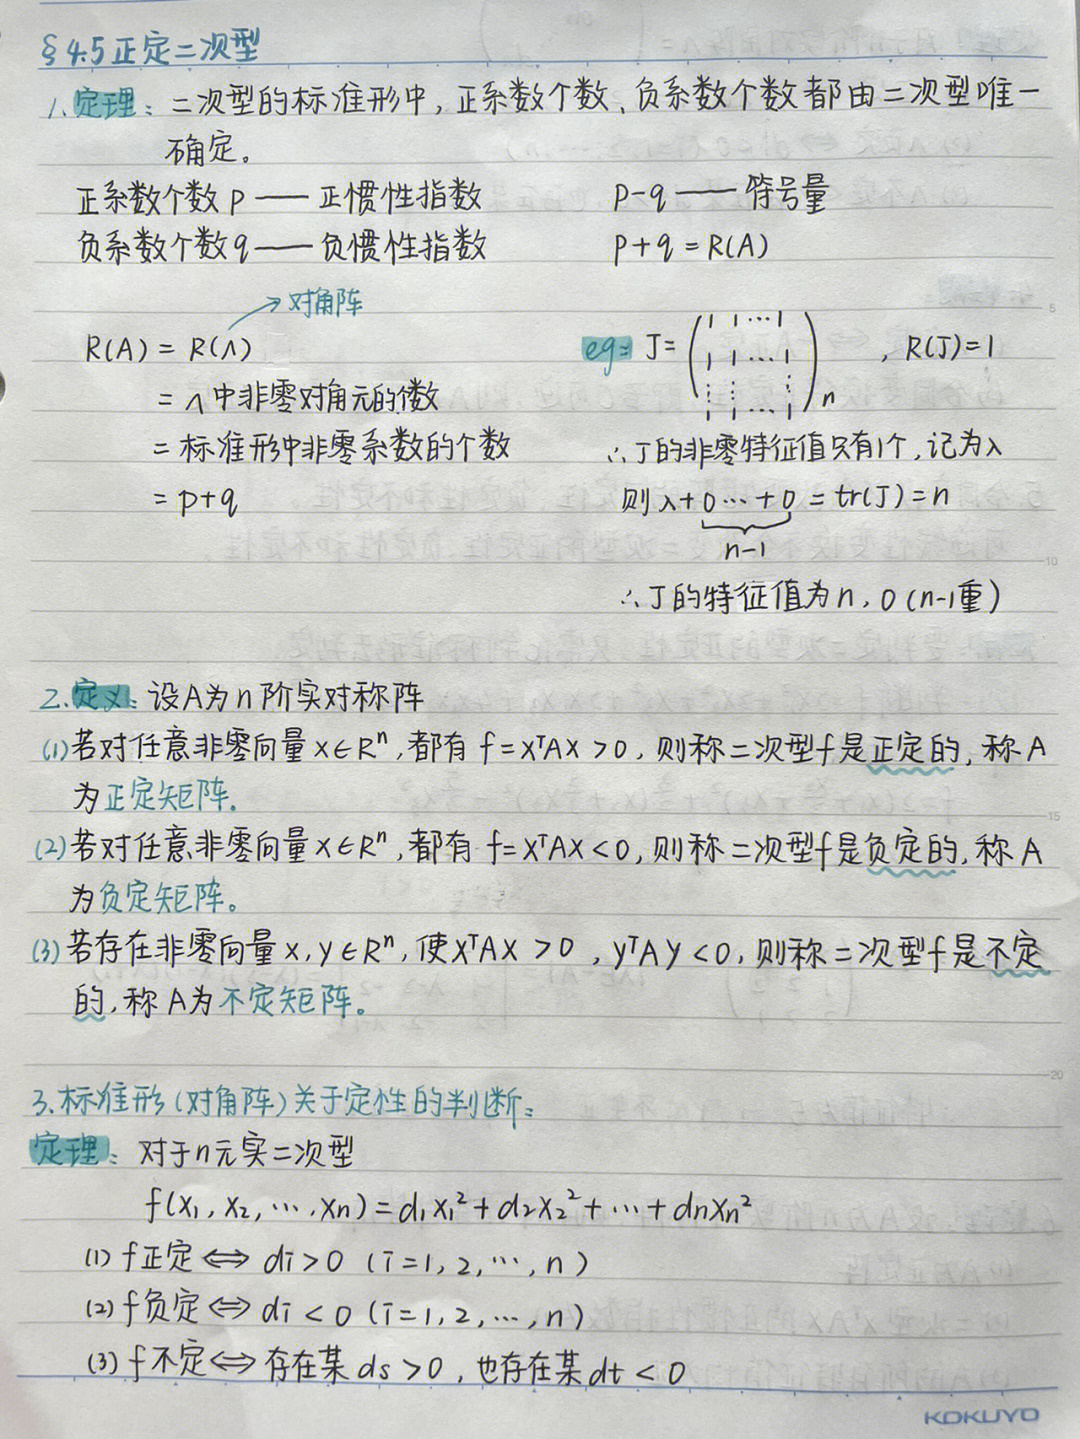 §4.5正定二次型
1.定理：二次型的标准形中，正系数个数、负系数个数都由二次型唯一
确定。
正系数个数p——正惯性指数 p-q——符号量
负系数个数q——负惯性指数 p+q=R(A)
对角阵
R(A)=R(Λ)
=Λ中非零对角元的个数
=标准形中非零系数的个数
=p+q
eg: J=(1 1 ⋯ 1
1 1 ⋯ 1
⋮ ⋮ ⋮
1 1 ⋯ 1)n ，R(J)=1
∴J的非零特征值只有1个，记为λ
则λ+0⋯+0=tr(J)=n
n-1
∴J的特征值为n，0(n-1重)
2.定义：设A为n阶实对称阵
(1)若对任意非零向量x∈Rⁿ,都有f=xᵀAx>0，则称二次型f是正定的，称A
为正定矩阵.
(2)若对任意非零向量x∈Rⁿ,都有f=xᵀAx<0,则称二次型f是负定的,称A
为负定矩阵。
(3)若存在非零向量x,y∈Rⁿ,使xᵀAx>0，yᵀAy<0,则称二次型f是不定
的,称A为不定矩阵。
3.标准形(对角阵)关于定性的判断：
定理：对于n元实二次型
f(x₁,x₂,⋯,xn)=d₁x₁²+d₂x₂²+⋯+dnxn²
(1)f正定⇔di>0(i=1,2,⋯,n)
(2)f负定⇔di<0(i=1,2,⋯,n)
(3)f不定⇔存在某ds>0，也存在某dt<0
5
10
15
20
KOKUYO